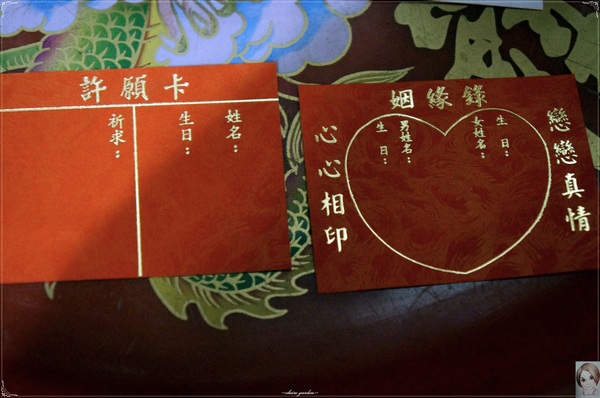 許願卡
姓名：
生日：
祈求：
姻緣錄
戀戀真情
生日：
女姓名：
男姓名：
生日：
心心相印
~claire garden~